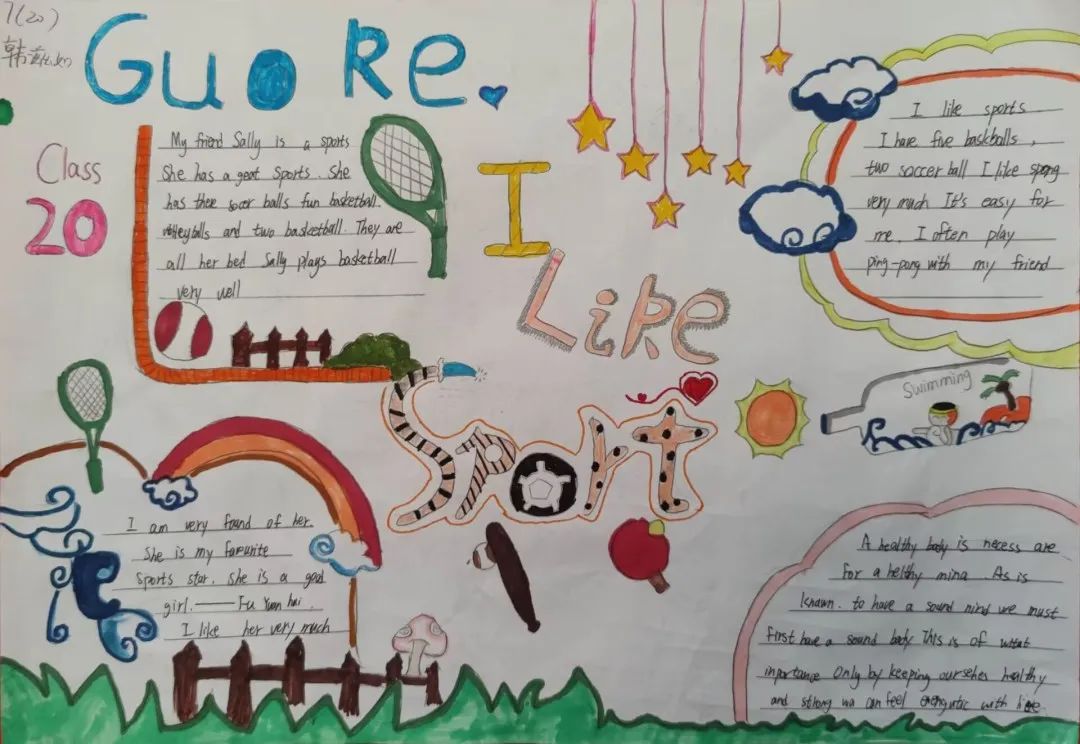 7(20)
韩
Guo Ke
Class
20
My friend Sally is a sports
She has a geat sports. She
has thee socer balls fun basketball.
volleyballs and two basketball. They are
all her bed Sally plays basketball
very well
I
Like
Sport
I like sports
I have five baskballs,
two soccer ball I like
very much It's easy for
me. I often play
ping-pong with my friend
Swimming
I am very found of her.
She is my favurite
sports star. She is a goal
girl.——Fu Yuan hui.
I like her very much
A healthy body is necess are
for a helthy mina As is
known. to have a sound mind we must
first have a sound body This is of
inportance Only by keeping ourselves healthy
and strong we can feel with